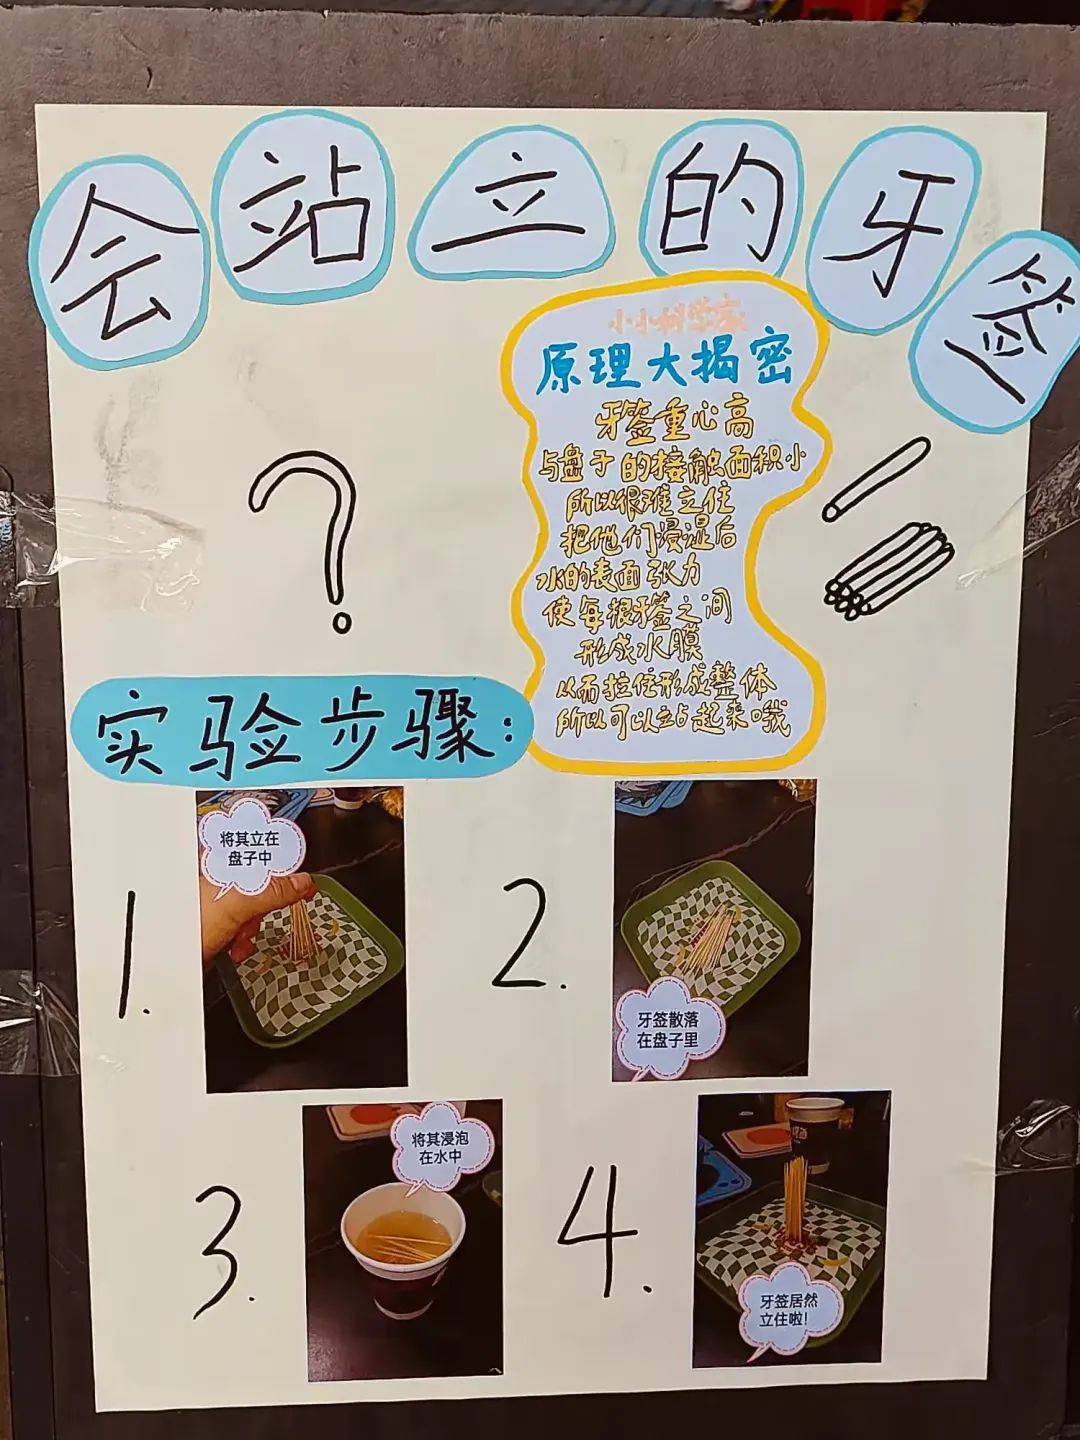 会站立的牙签
小小科学家
原理大揭密
牙签重心高
与盘子的接触面积小
所以很难立住
把他们浸湿后
水的表面张力
使每根牙签之间
形成水膜
从而拉住形成整体
所以可以站起来哦
实验步骤:
1.
将其立在
盘子中
2.
牙签散落
在盘子里
3.
将其浸泡
在水中
4.
牙签居然
立住啦!